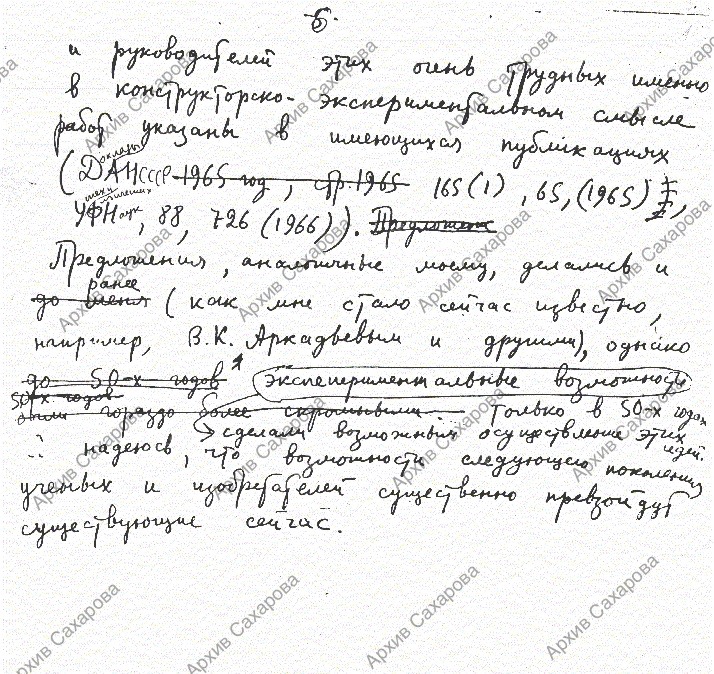 5.
и руководителей этих очень трудных именно
в конструкторско-экспериментальном смысле
работ указаны в имеющихся публикациях
(Доклады ДАН СССР 1965 год, стр. 1965 165(1), 65, (1965)
технических
УФНаук, 88, 726 (1966)). Предложен
Предложения, аналогичные моему, делались и
ранее
до меня (как мне стало сейчас известно,
например, В.К. Аркадьевым и другими), однако
до 50-х годов экспериментальные возможности
50-х годов
были гораздо более скромными. Только в 50-х годах
сделали возможным осуществление этих идей.
надеюсь, что возможности следующего поколения
ученых и изобретателей существенно превзойдут
существующие сейчас.
Архив Сахарова